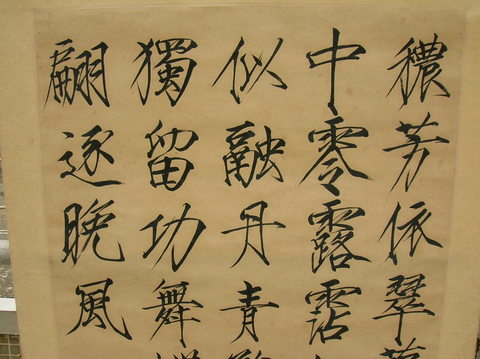 穠芳依翠
中零露霑
似融丹青
獨留功舞
翩逐晚風